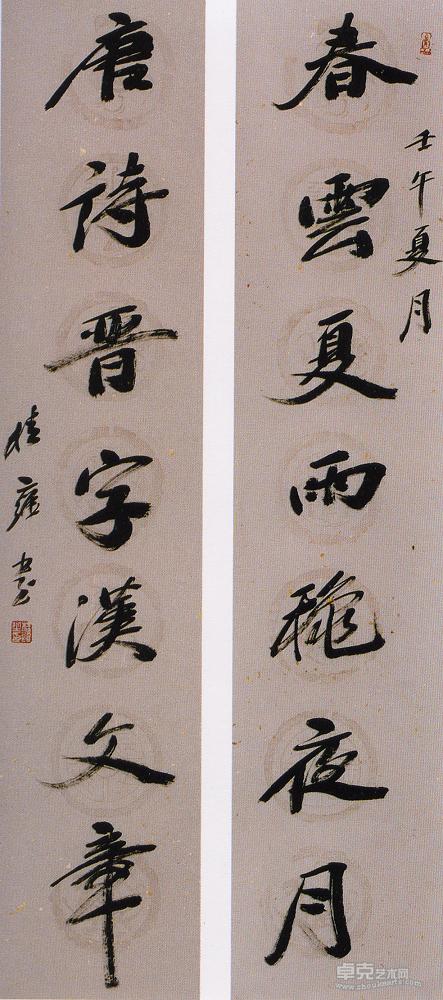 春雲夏雨穐夜月
壬午夏月
唐詩晋字漢文章
桂雍书
卓克艺术网
www.zhuokearts.com